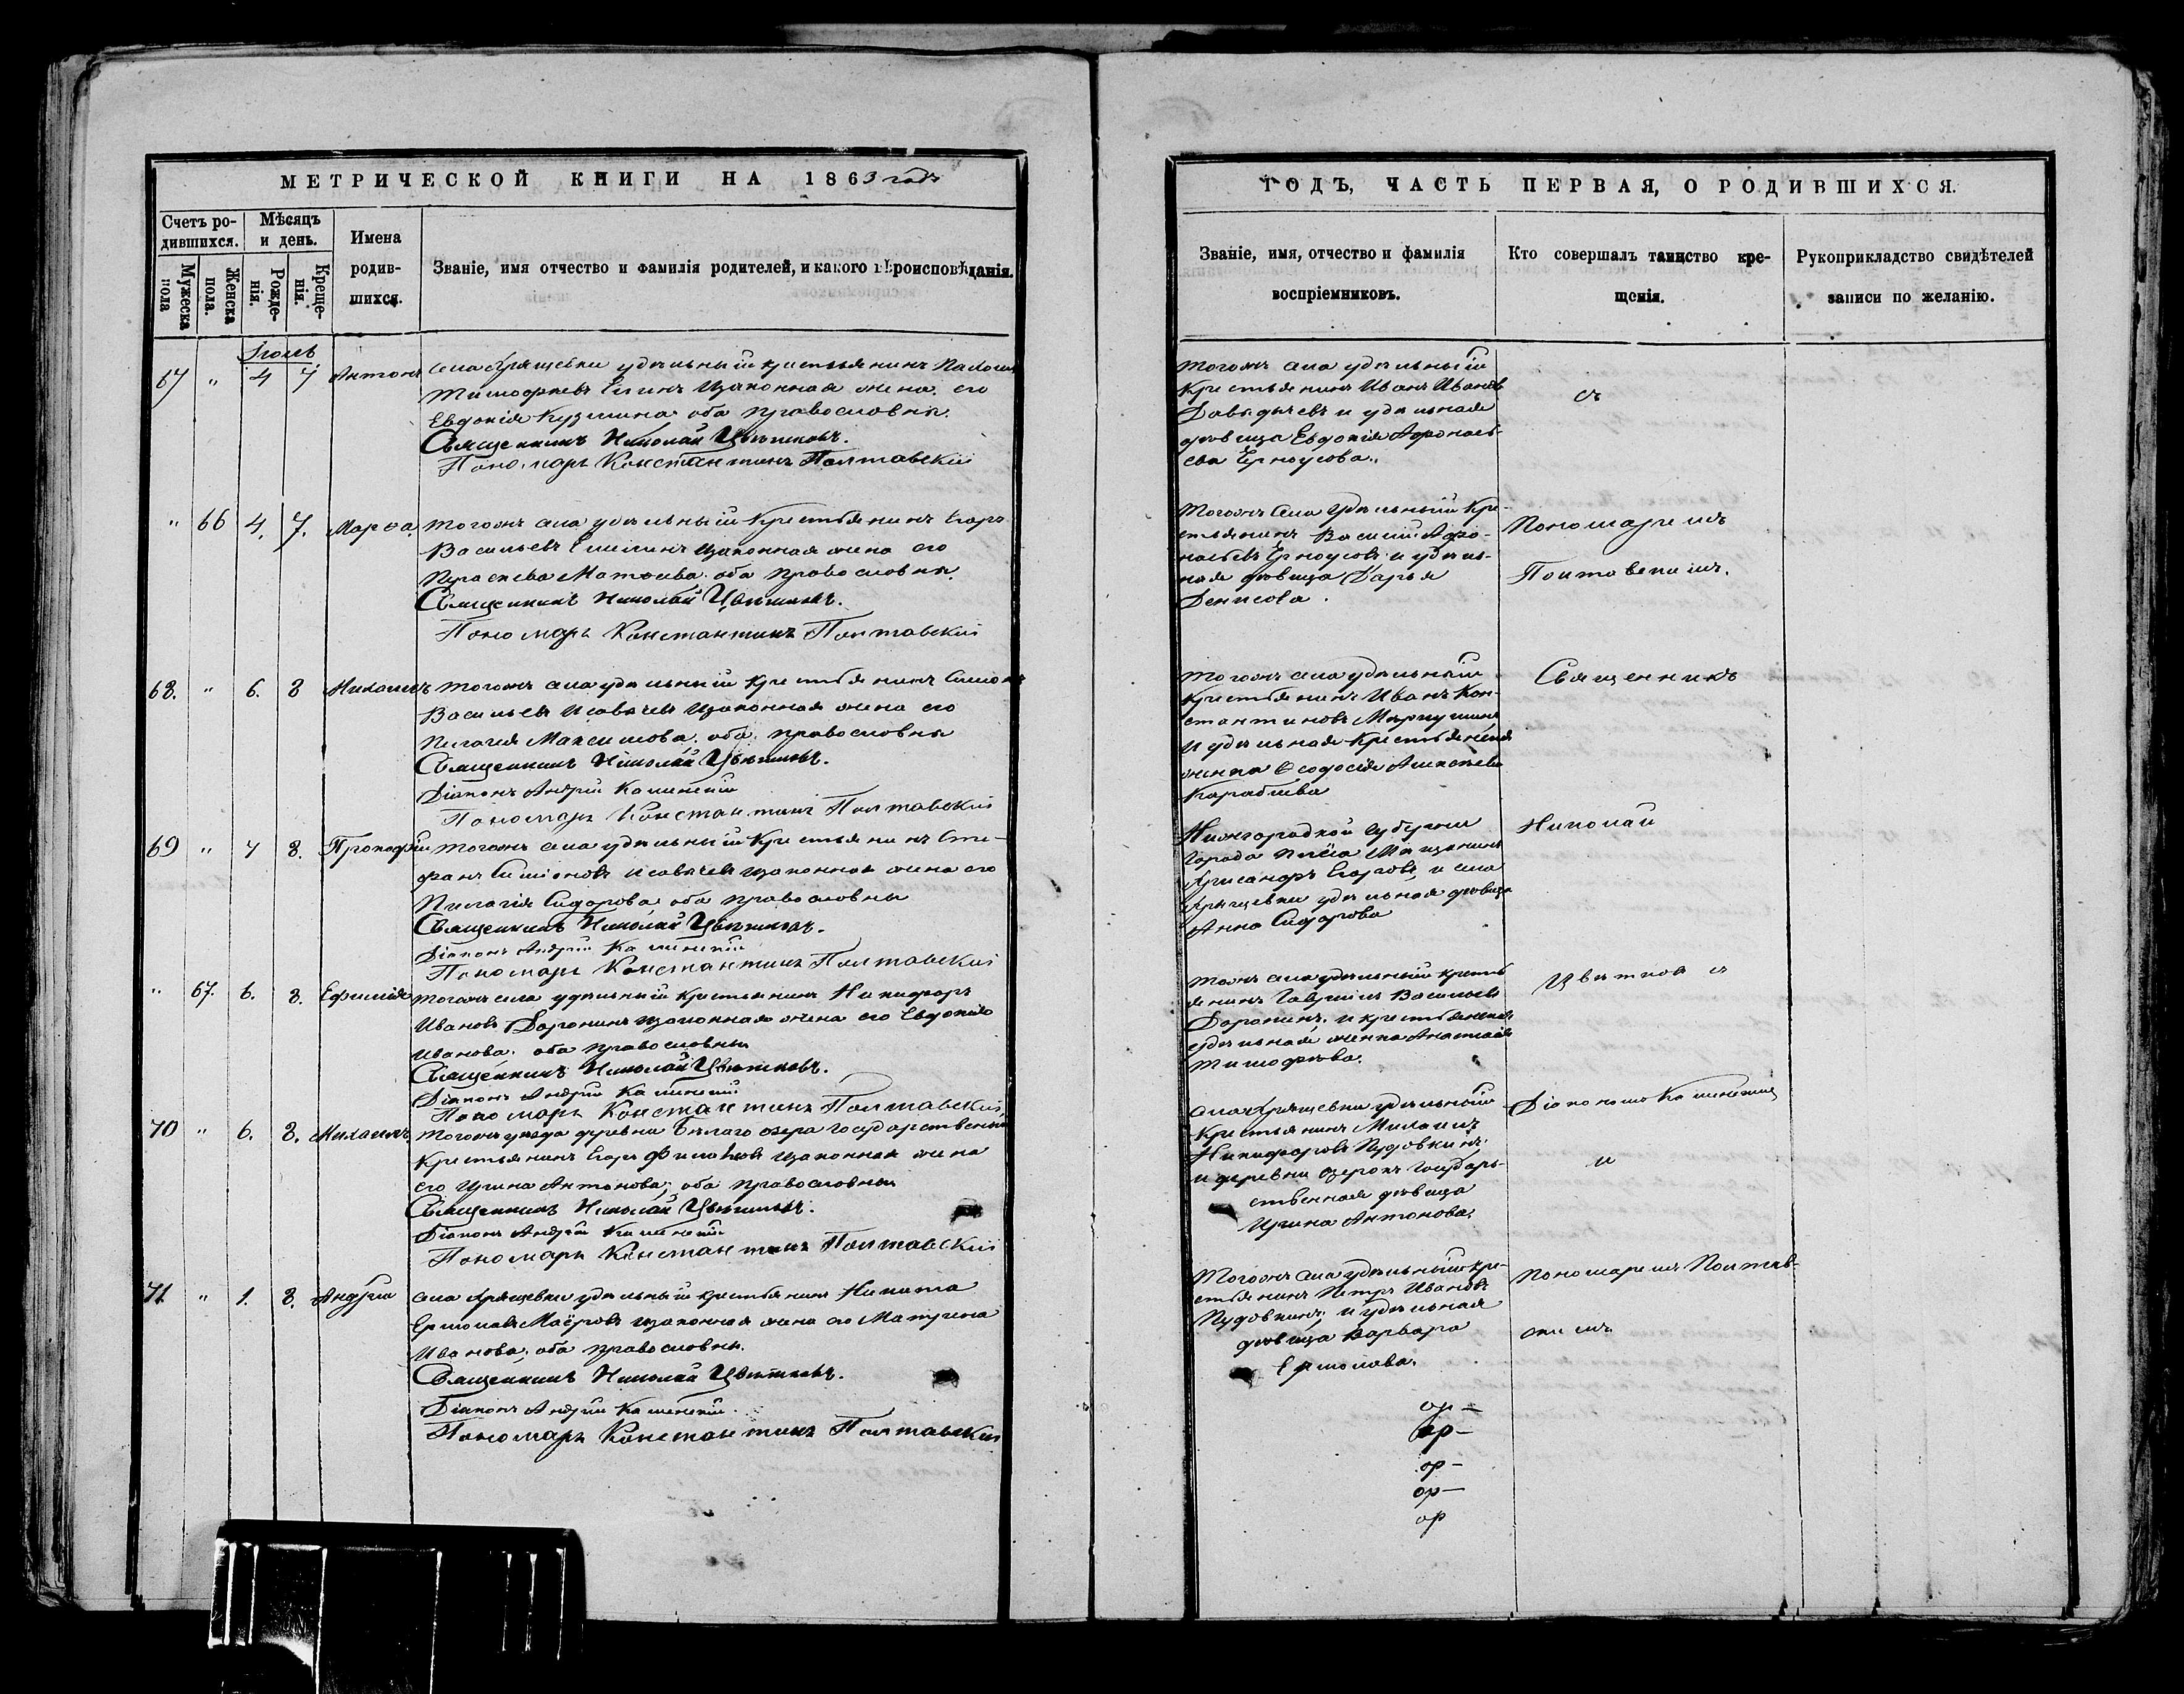 МЕТРИЧЕСКОЙ КНИГИ НА 1863 годъ
Счетъ ро-
дившихся.
Мѣсяцъ
и день.
Имена
родив-
шихся.
Званіе, имя отчество и фамилія родителей, и какого вѣроисповѣданія.
Мужеска
пола
Женска
пола.
Рожде-
нія.
Креще-
нія.
67 " 4 7 Антонъ села Хрящевки удѣльный крестьянинъ
Тимофеевъ законная жена его
Евдокія Кузмина оба православны.
Священникъ Николай Цвѣтковъ.
Пономарь Константинъ Полтавскій
" 66 4. 7. Марѳа. тогожъ села удѣльный крестьянинъ Егоръ
Васильевъ законная жена его
оба православны.
Священникъ Николай Цвѣтковъ.
Пономарь Константинъ Полтавскій
68. " 6. 8 Михаилъ тогожъ села удѣльный крестьянинъ Симіонъ
Васильевъ Исавичевъ законная жена его
Пелагія Максимова. оба православны
Священникъ Николай Цвѣтковъ.
Діаконъ Андрей Каменскій
Пономарь Константинъ Полтавскій
69 " 7 8. Прокофій тогожъ села удѣльный крестьянинъ Сте-
фанъ Симіоновъ Исавичевъ законная жена его
Пелагія Сидорова оба православны
Священникъ Николай Цвѣтковъ.
Діаконъ Андрей Каменскій
Пономарь Константинъ Полтавскій
" 67. 6. 8. Ефимія тогожъ села удѣльный крестьянинъ Никифоръ
Ивановъ Доронинъ законная жена его Евдокія
Иванова. оба православны
Священникъ Николай Цвѣтковъ.
Діаконъ Андрей Каменскій
Пономарь Константинъ Полтавскій
70 " 6. 8. Михаилъ тогожъ уѣзда деревни Бѣлаго озера Государственный
крестьянинъ Егоръ законная жена
его Ирина Антонова; оба православны
Священникъ Николай Цвѣтковъ.
Діаконъ Андрей Каменскій
Пономарь Константинъ Полтавскій
71. " 1. 8. Андрей села Хрящевки удѣльный крестьянинъ Никита
Ермолаевъ Маёровъ законная жена его Матрена
Иванова; оба православны.
Священникъ Николай Цвѣтковъ.
Діаконъ Андрей Каменскій.
Пономарь Константинъ Полтавскій
ГОДЪ, ЧАСТЬ ПЕРВАЯ, О РОДИВШИХСЯ.
Званіе, имя, отчество и фамилія
воспріемниковъ.
Кто совершалъ таинство кре-
щенія.
Рукоприкладство свидѣтелей
записи по желанію.
тогожъ села удѣльный
крестьянинъ Иванъ Ивановъ
Давыдычевъ и удѣльная
дѣвица Евдокія Афонась-
ева Ерноусова.
съ
тогожъ села удѣльный кре-
стьянинъ Василій Афо-
насьевъ Ерноусовъ и удѣль-
ная дѣвица Дарья
Денисова.
Пономаремъ
Полтавскимъ.
тогожъ села удѣльный
крестьянинъ Иванъ Кон-
стантиновъ
и удѣльная крестьянская
женка Ѳеодосія Алексѣева
Караблева
Священникъ
Нижгородкой губерніи
города Мещанинъ
Егоровъ, и села
Хрящевки удѣльная дѣвица
Анна Сидорова
Николай
тожъ села удѣльный кресть
янинъ Гавріилъ Васильевъ
Доронинъ. и крестьянская
удѣльная женка Анастасія
Тимофѣева.
Цвѣтковъ съ
села Хрящевки удѣльный
крестьянинъ Михаилъ
Никифоровъ Пудовкинъ.
и деревни Озерокъ Государ-
ственная дѣвица
Ирина Антонова.
Діакономъ Каменскимъ
и
тогожъ села удѣльный кре-
стьянинъ Петръ Ивановъ
Пудовкинъ; и удѣльная
дѣвица Варвара
Ермолова.
Пономаремъ Полтав-
скимъ